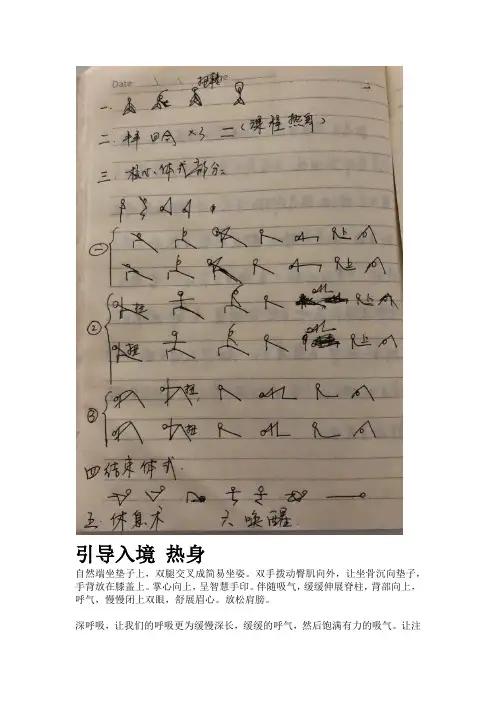 Date
扭转
一.
二. 拜日令 x3 二 (课程热身)
三. 核心体式部分:
① 上
上
② 扭 上
扭 上
③ 扭
扭
四 结束体式.
五. 休息术 六. 唤醒.
引导入境 热身
自然端坐垫子上，双腿交叉成简易坐姿。双手拨动臀肌向外，让坐骨沉向垫子，
手背放在膝盖上。掌心向上，呈智慧手印。伴随吸气，缓缓伸展脊柱，背部向上，
呼气，慢慢闭上双眼，舒展眉心。放松肩膀。
深呼吸，让我们的呼吸更为缓慢深长，缓缓的呼气，然后饱满有力的吸气。让注